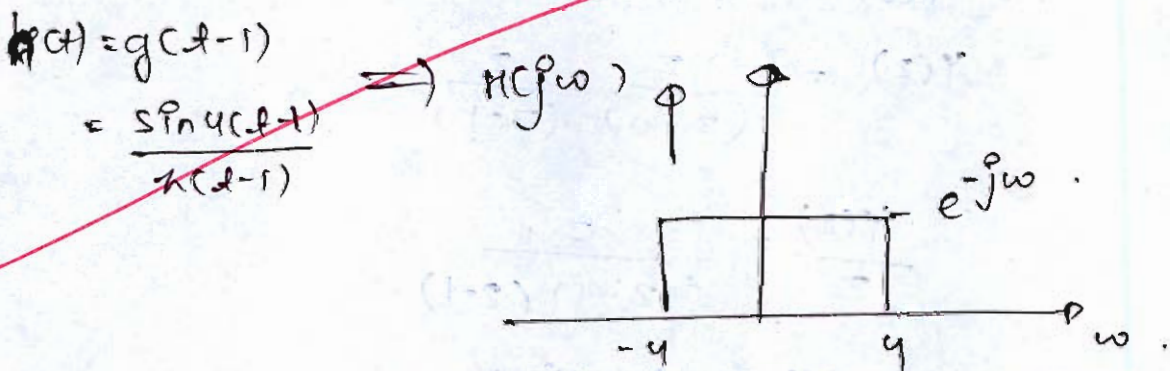 h(t) = g(t-1)
= sin 4(t-1) / π(t-1)
⇒ H(jω)
e^-jω .
-4 4 ω .